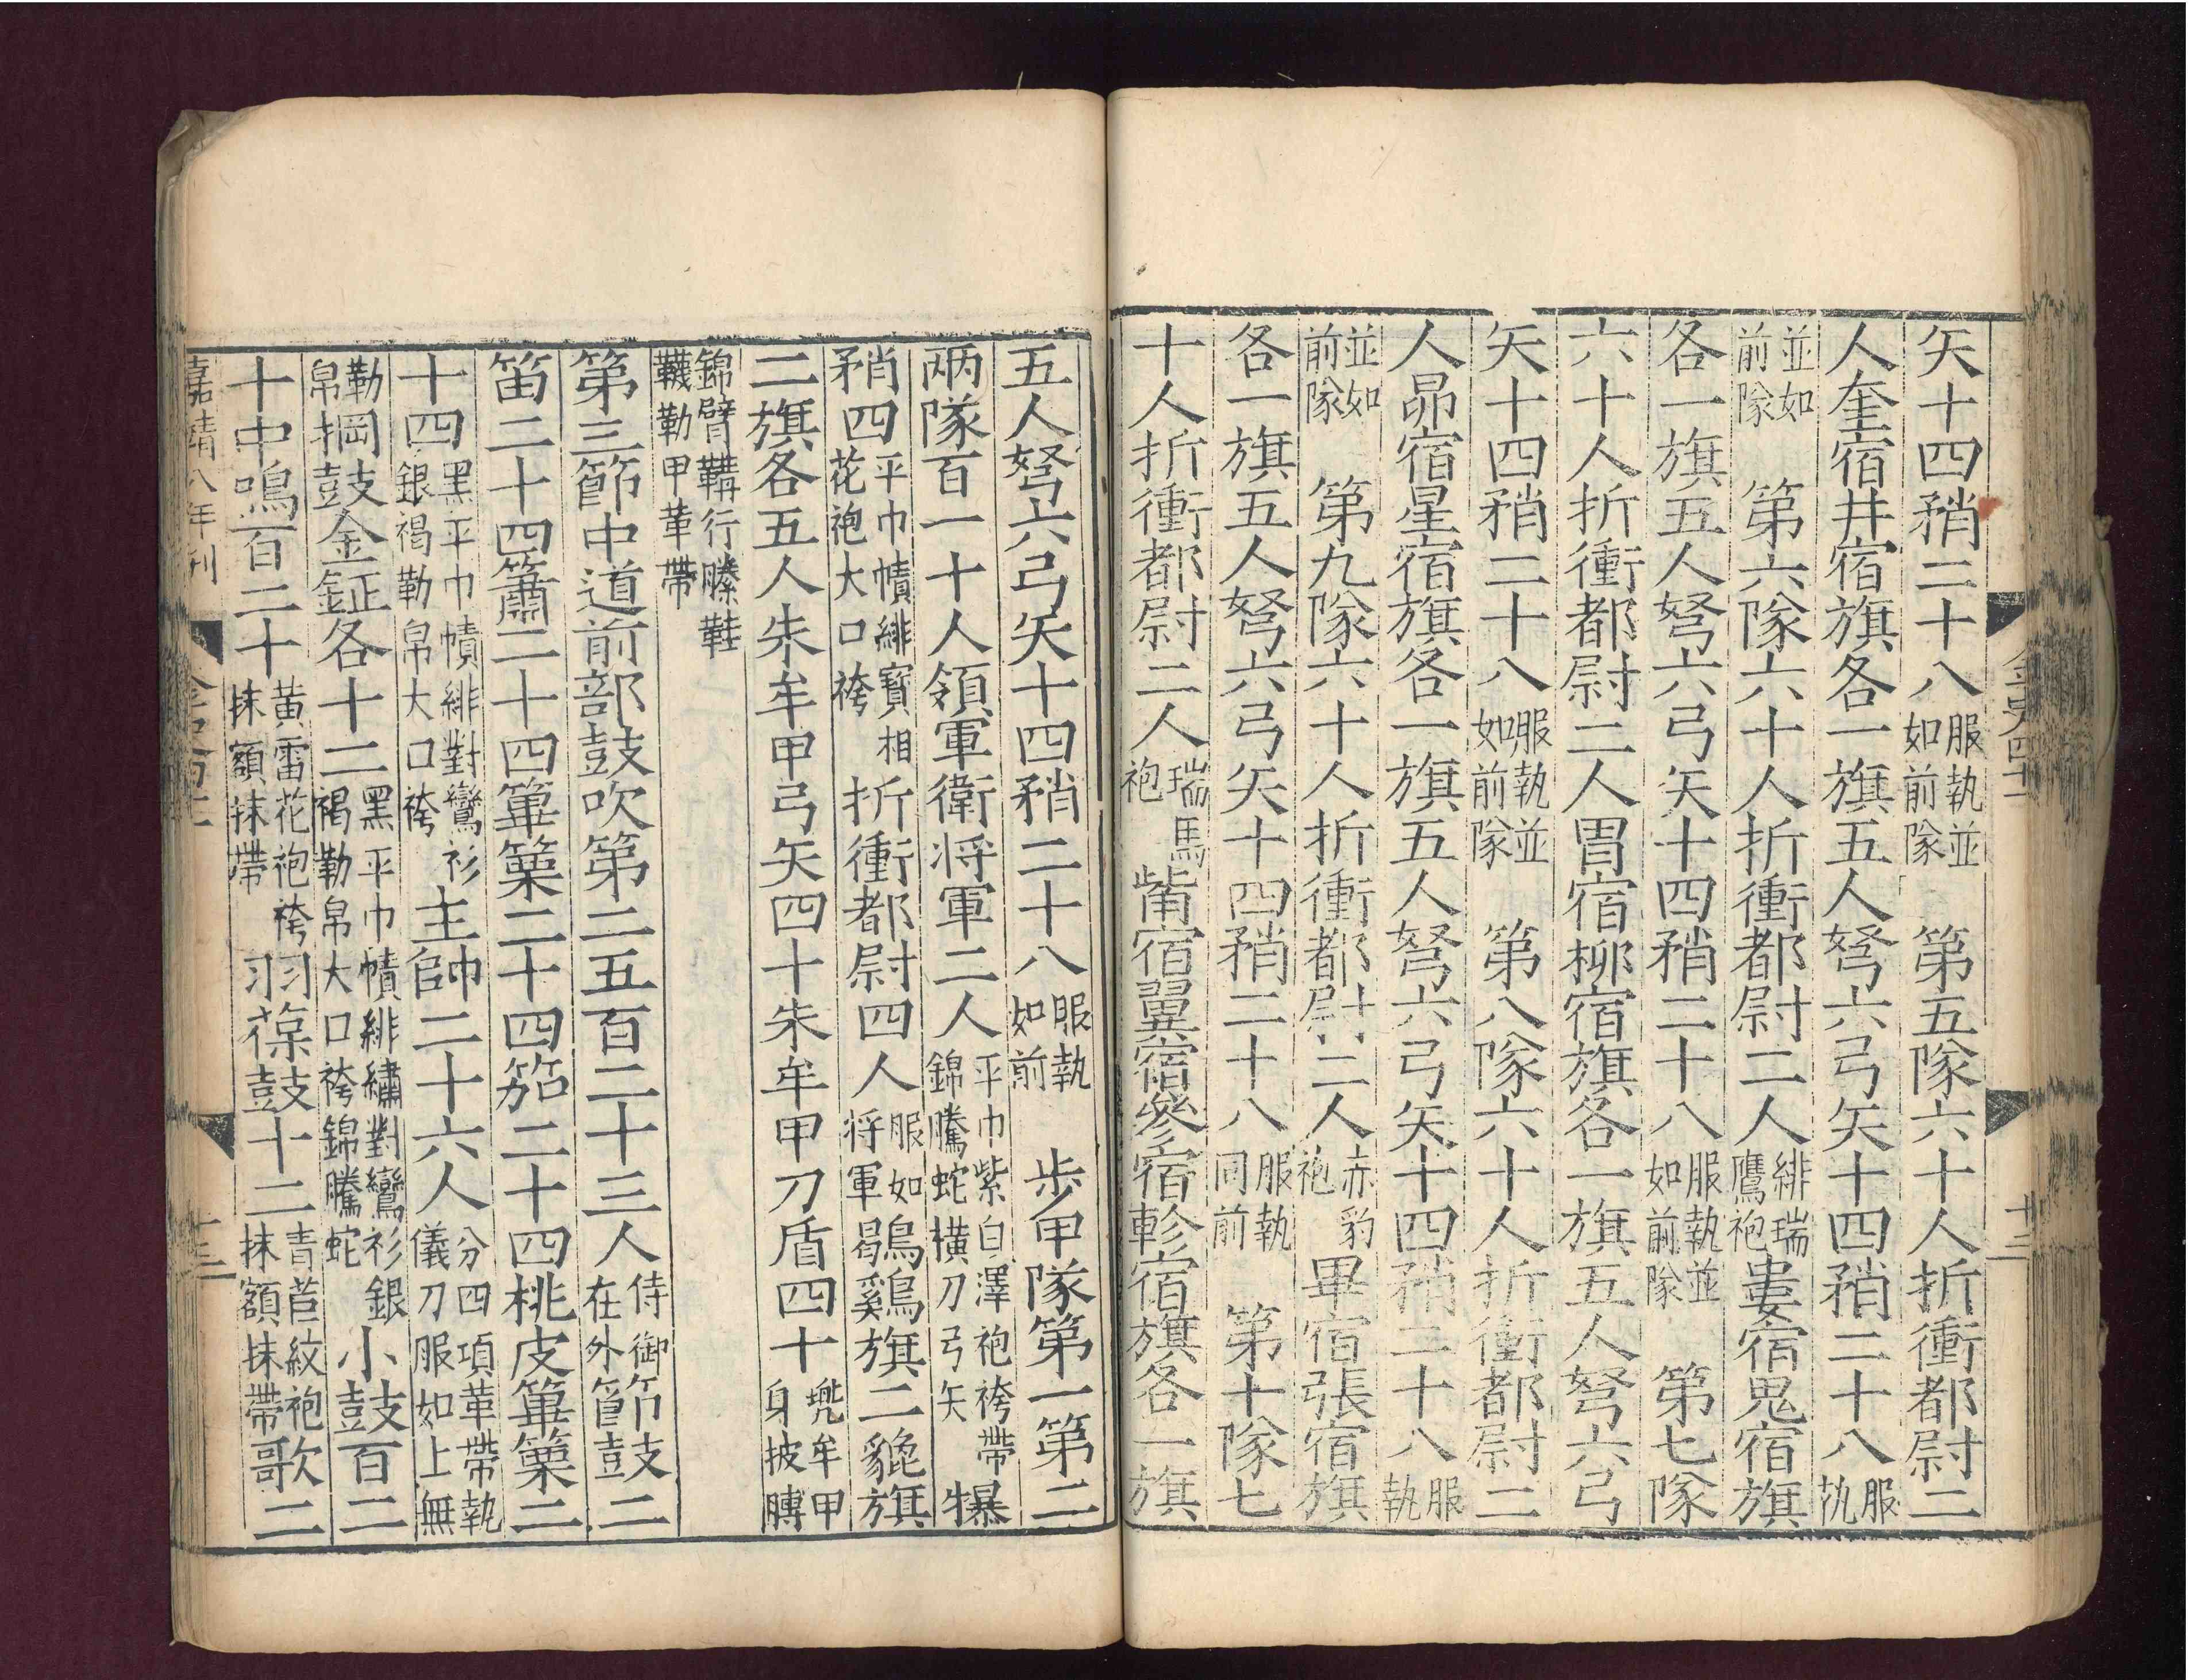 矢十四矟二十八服執並如前隊　第五隊六十人折衝都尉二
人奎宿井宿旗各一旗五人弩六弓矢十四矟二十八服執
並如前隊　第六隊六十人折衝都尉二人緋瑞鷹袍婁宿鬼宿旗
各一旗五人弩六弓矢十四矟二十八服執並如前隊　第七隊
六十人折衝都尉二人胃宿柳宿旗各一旗五人弩六弓
矢十四矟二十八服執並如前隊　第八隊六十人折衝都尉二
人昴宿星宿旗各一旗五人弩六弓矢十四矟二十八服執
並如前隊　第九隊六十人折衝都尉二人赤豹袍畢宿張宿旗
各一旗五人弩六弓矢十四矟二十八服執同前　第十隊七
十人折衝都尉二人瑞馬袍觜宿翼宿參宿軫宿旗各一旗
金史四十二
十二
五人弩六弓矢十四矟二十八服執如前　步甲隊第一第二
兩隊百一十人領軍衛將軍二人平巾紫白澤袍袴帶錦螣蛇橫刀弓矢𤛑
矟四平巾幘緋寶相花袍大口袴折衝都尉四人服如將軍鶡雞旗二貔旗
二旗各五人朱牟甲弓矢四十朱牟甲刀盾四十兜牟甲身披膊
錦臂鞲行縢鞋韈勒甲革帶
第三節中道前部鼓吹第二五百二十三人侍御在外節鼓二
笛二十四簫二十四篳篥二十四笳二十四桃皮篳篥二
十四黑平巾幘緋對鸞衫銀褐勒帛大口袴主帥二十六人分四項革帶執儀刀服如上無
勒帛掆鼓金鉦各十二黑平巾幘緋繡對鸞衫銀褐勒帛大口袴錦螣蛇小鼓百二
十中鳴百二十黃雷花袍袴抹額抹帶羽葆鼓十二青苣紋袍抹額抹帶歌二
嘉靖八年刊
十三